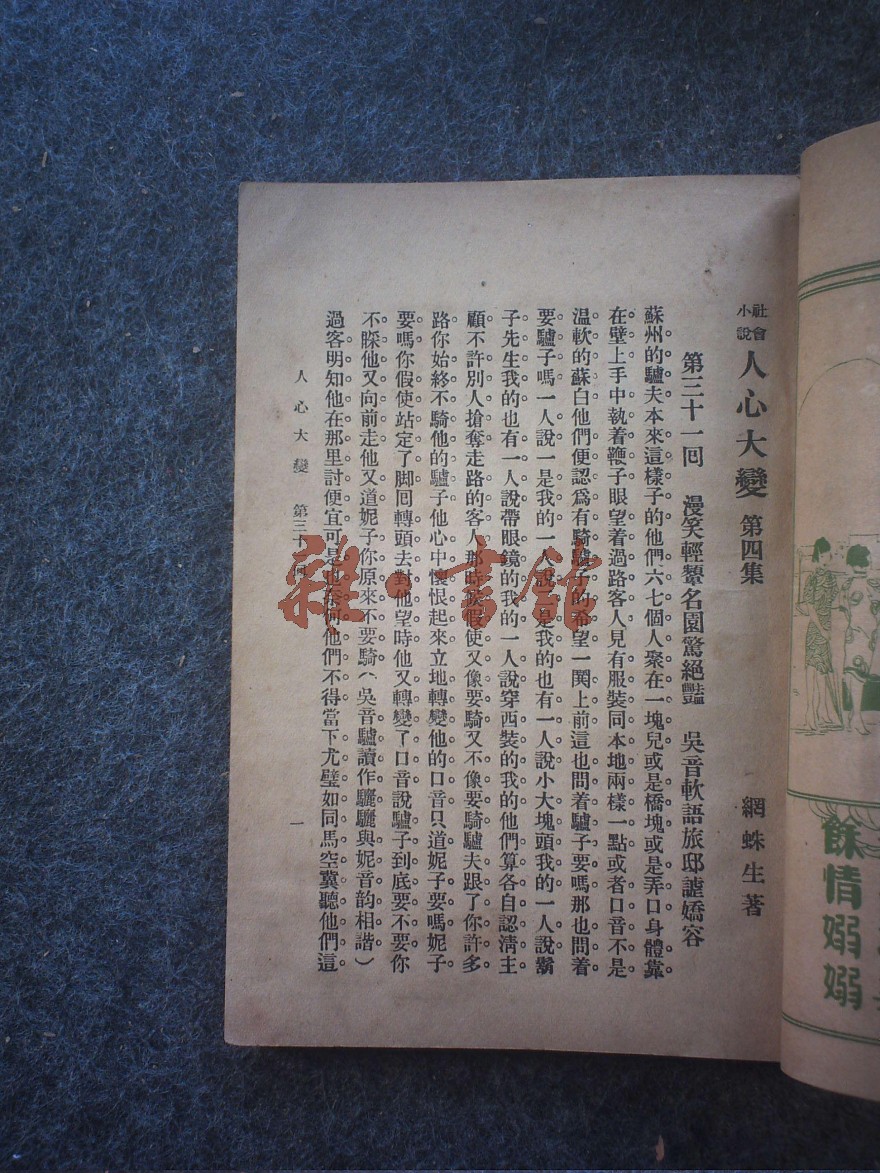 社會小說 人心大變 第四集 網蛛生著
第三十一回 漫笑輕顰名園驚絕豔 吳音軟語旅邸謔嬌容
蘇州的驢夫本來這樣子的他們六七個人聚在一塊兒或是橋塊或是弄口身體靠
在壁上手中執着鞭子眼望着過路客人見有服裝同本地兩樣一點或者口音不是
温軟的蘇白他們便認爲有騎驢子的希望一閧上前這也問着驢子要嗎那也問着
要驢子嗎一人說一是我的一人說 是我的也有一人說小大塊頭我的一人說鬍
子先生我的也有一人說帶眼鏡的我的一人說穿西裝的我的他們算各自認淸主
顧不許別人搶奪走路的客人那時候假使又像要騎又不像要騎驢夫跟了你許多
路你始終不騎他的驢子他心中懷恨起來立地轉變他的口音只道妮子要嗎妮子
要嗎你假使站定了脚回轉頭去對他望時他又轉變了口音說驢子到底要不要你
不睬他又向前走他又道妮子你原來不要騎(吳音驢讀作驪驪與妮音韵相諧)
過客明知他在那里討便宜可是也奈何他們不得當下尤璧如同馬空冀聽他們這
人心大變 第三十一回 一
餘情嫋嫋
雜書館